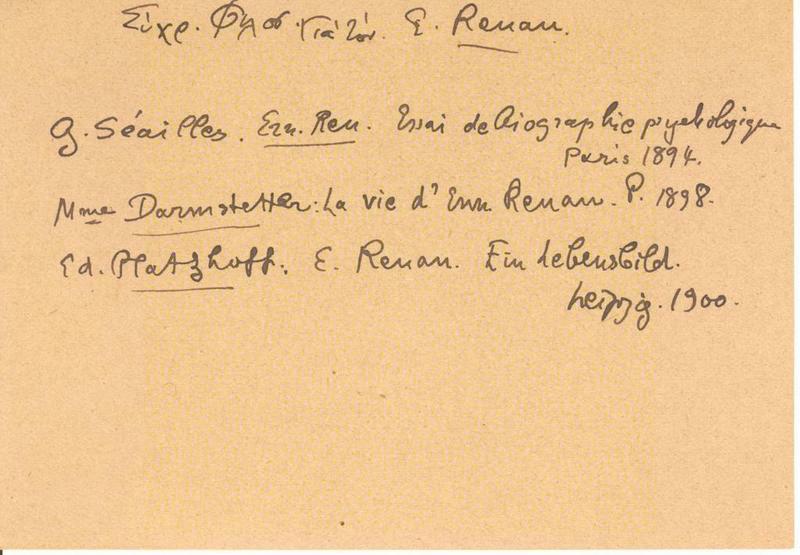 Σύχρ. Φιλοσ. Γιά τόν. E. Renan.
G. Séailles. Ern. Ren. Essai de biographie psychologique
Paris 1894.
Mme Darmstetter: La vie d'Ern. Renan. P. 1898.
Ed. Platzhoff: E. Renan. Ein Lebensbild.
Leipzig. 1900.